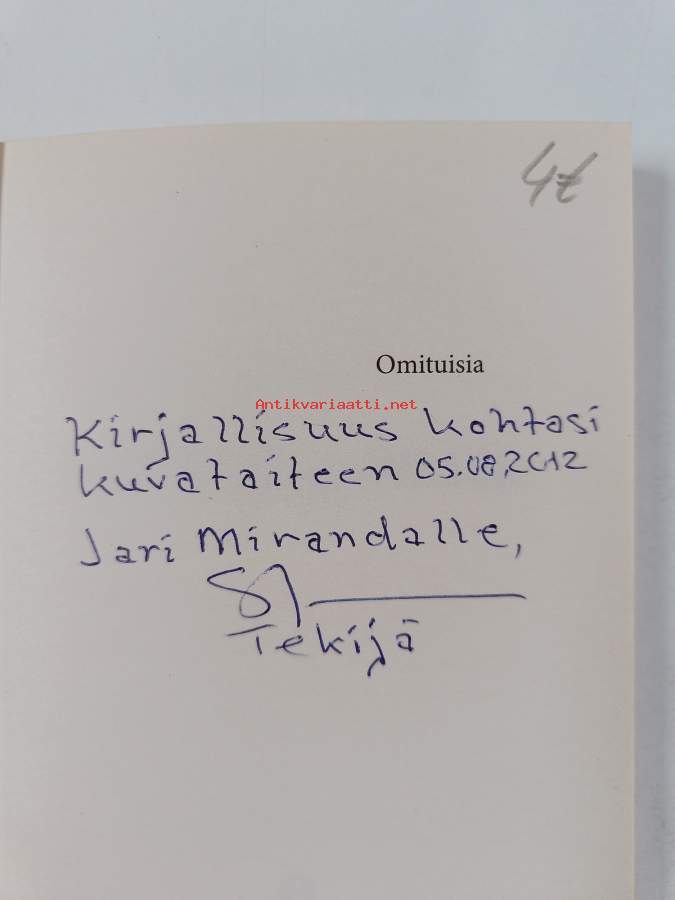 4€
Omituisia
Antikvariaatti.net
Kirjallisuus kohtasi
kuvataiteen 05.08.2012
Jari Mirandalle,
Tekijä